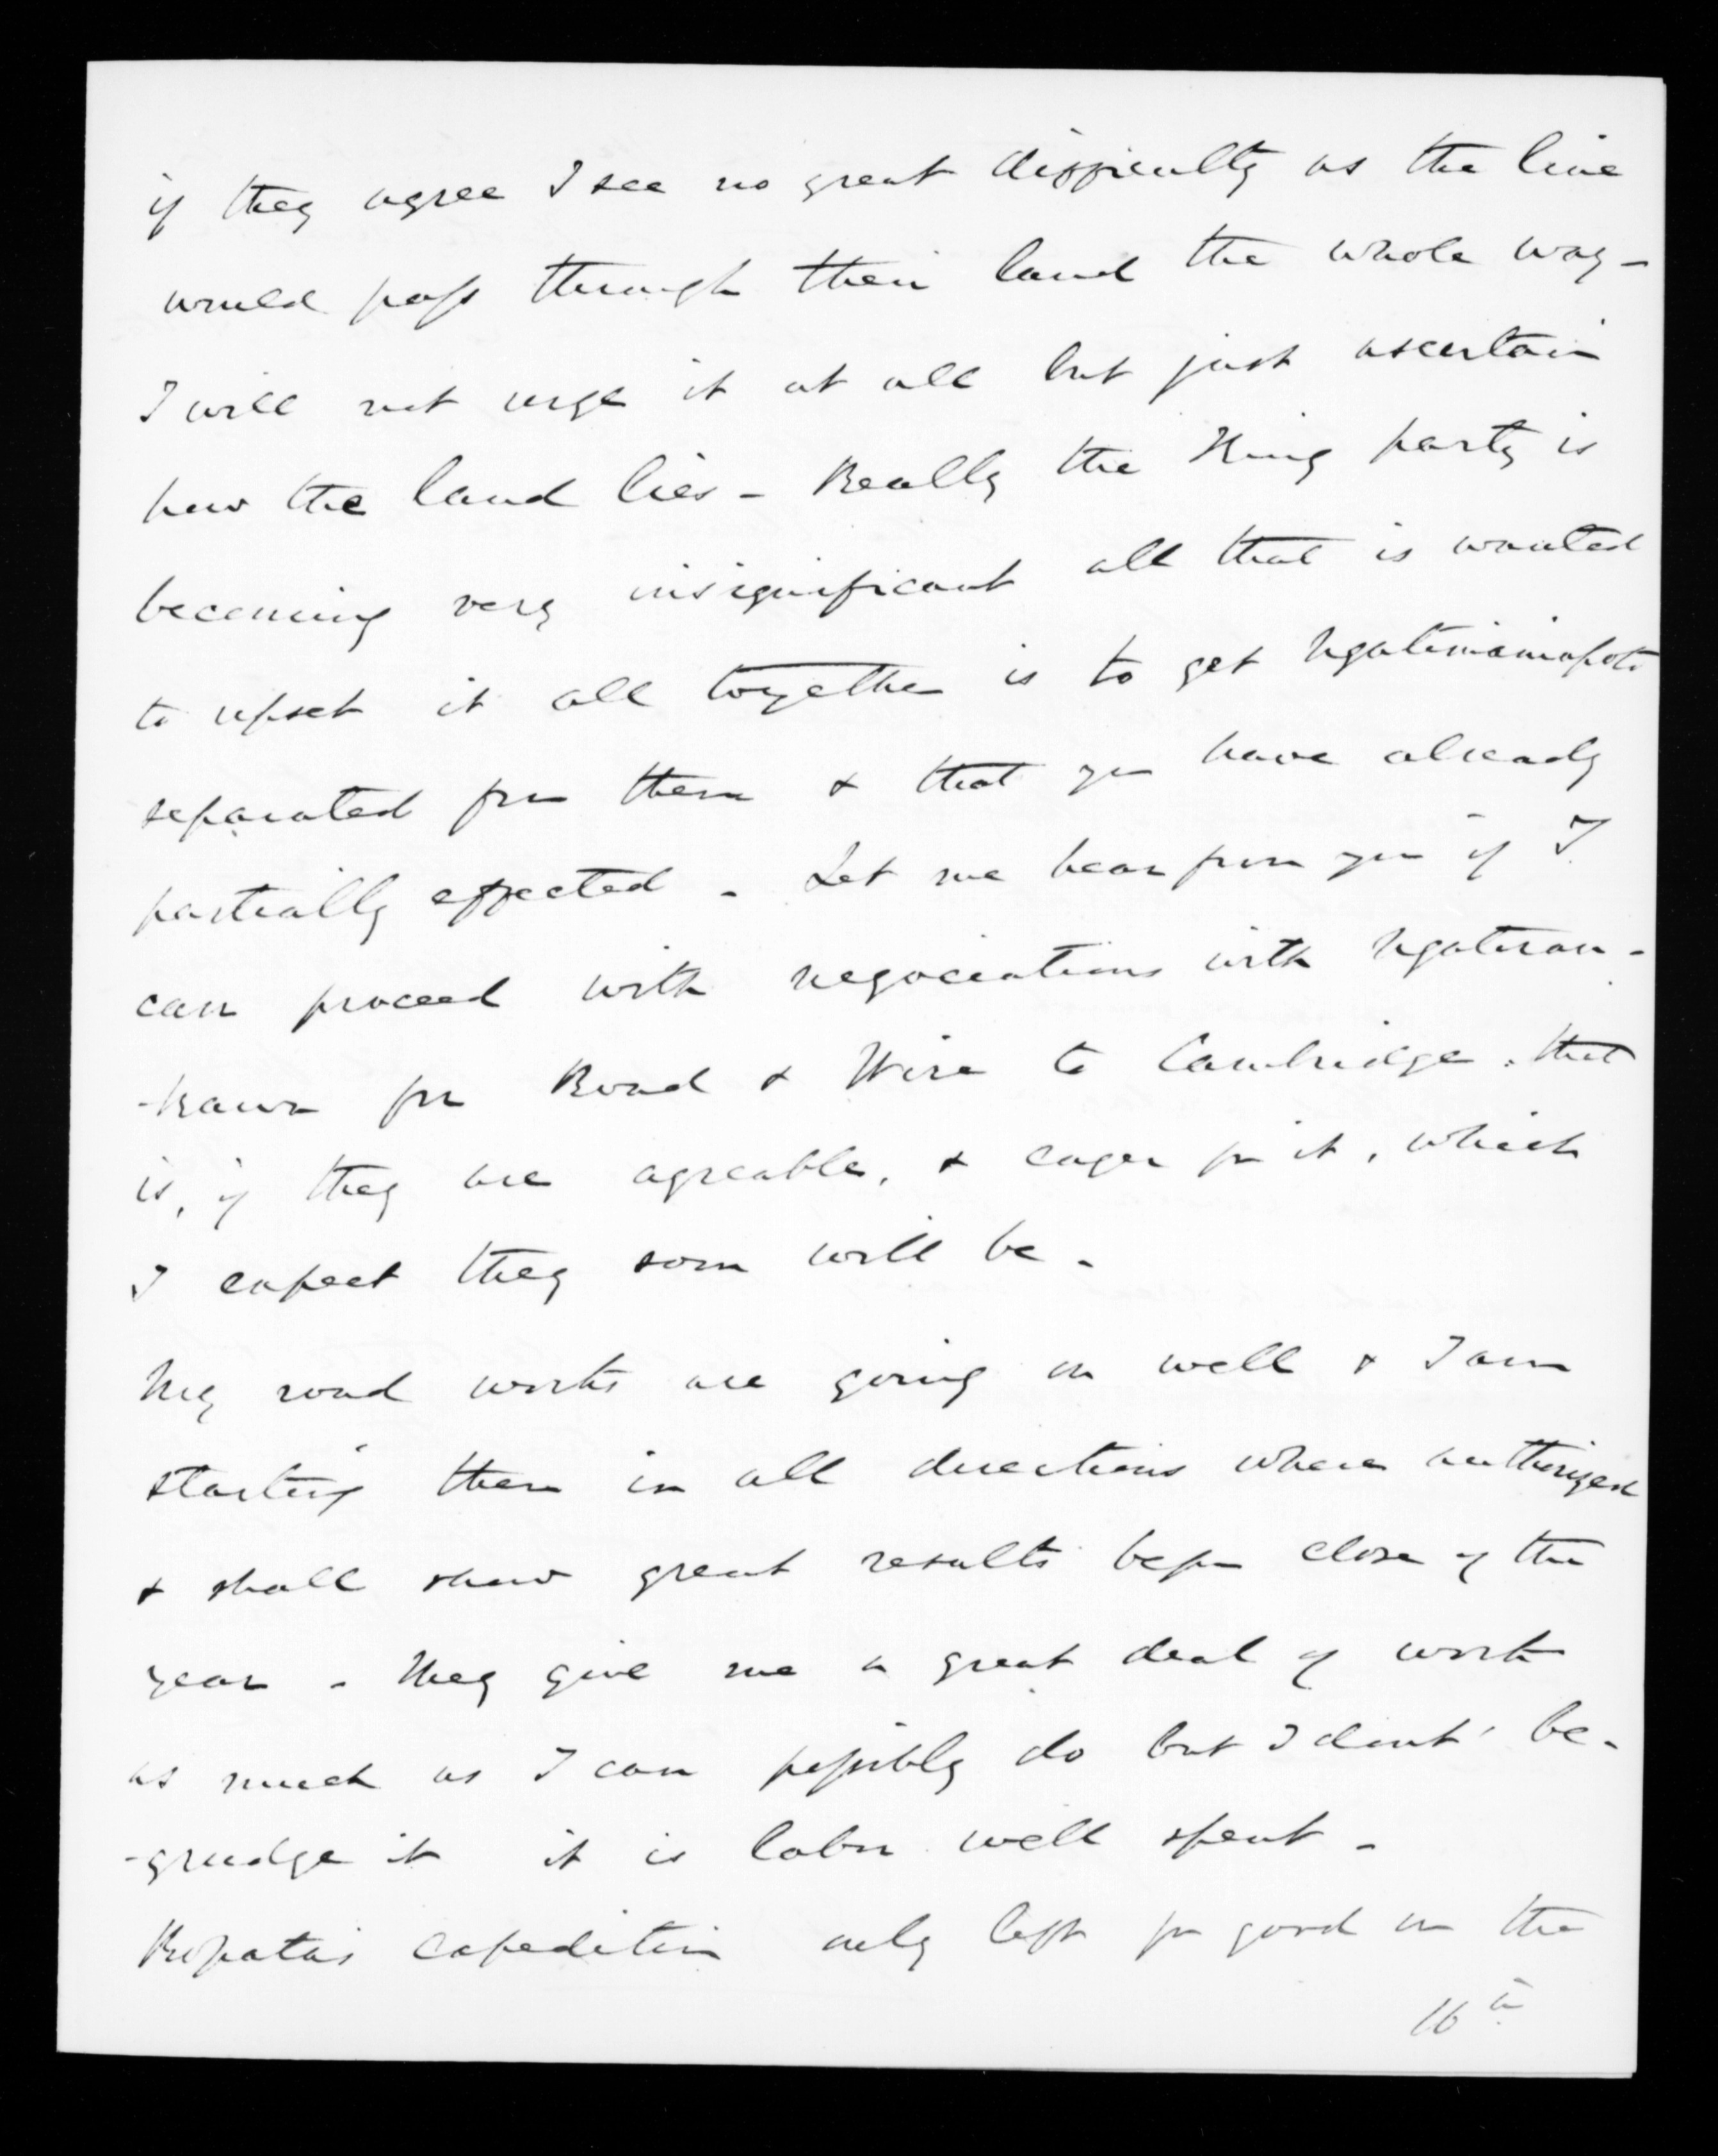 if they agree I see no great difficulty as the line
would pass through their land the whole way -
I will not urge it at all but just ascertain
how the land lies - Really the King party is
becoming very insignificant all that is wanted
to upset it all together is to get Ngatimaniapoto
separated from them & that you have already
partially effected - Let me hear from you if I
can proceed with negociations with Ngatirau-
-kawa for Road & Wire to Cambridge. that
is, if they are agreable, & eager for it, which
I expect they soon will be -
My road works are going on well & I am
starting them in all directions where authorized
& shall show great results before close of the
year - They give me a great deal of work
as much as I can possibly do but I dont' be-
-grudge it it is labor well spent -
Ropata's expedition only left for good on the
16th